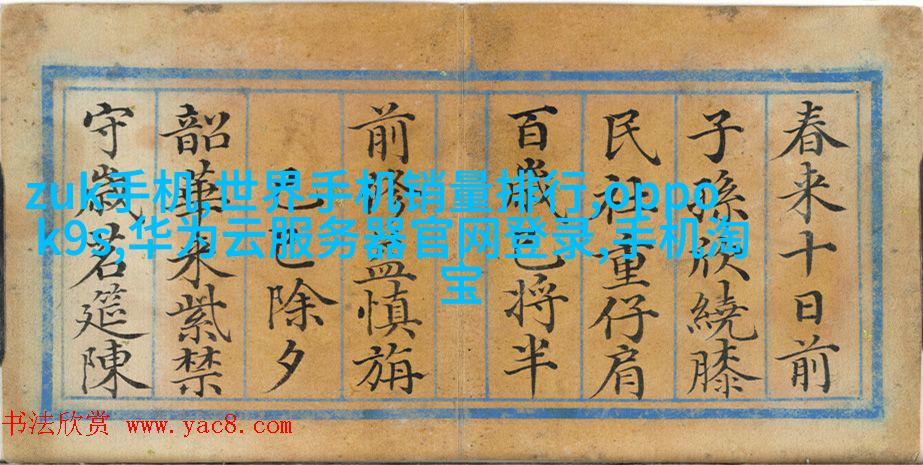 春来十日前
子孫欣繞膝
民社重仔肩
百歲已將半
前脩益慎旃
己巳除夕
韶華来紫禁
守歲茗筵陳
zuk手机,世界手机销量排行,oppo
k9s,华为云服务器官网登录,手机淘
宝
书法欣赏 www.yac8.com